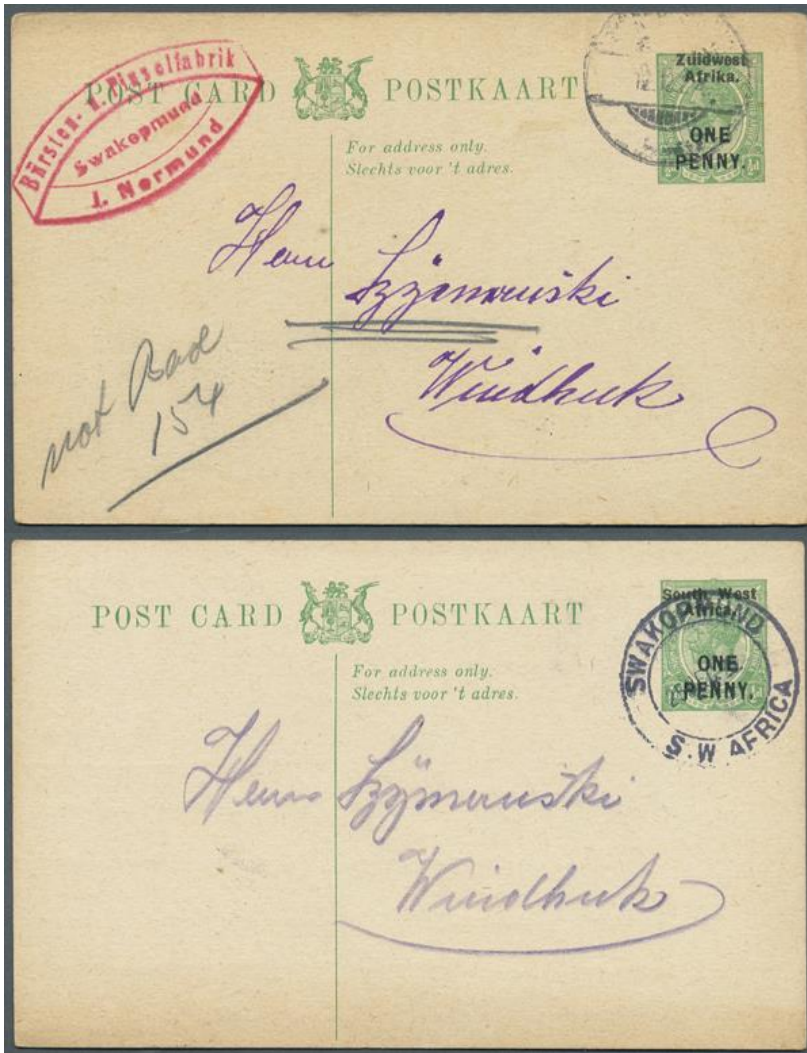 Bürsten- u. Pinselfabrik
Swakopmund
J. Normund
POST CARD POSTKAART
Zuidwest
Afrika.
ONE
PENNY.
For address only.
Slechts voor 't adres.
Herrn
Windhuk
not Bad
154
POST CARD POSTKAART
South West
Africa.
ONE
PENNY.
SWAKOPMUND
S.W AFRICA
For address only.
Slechts voor 't adres.
Herrn
Windhuk